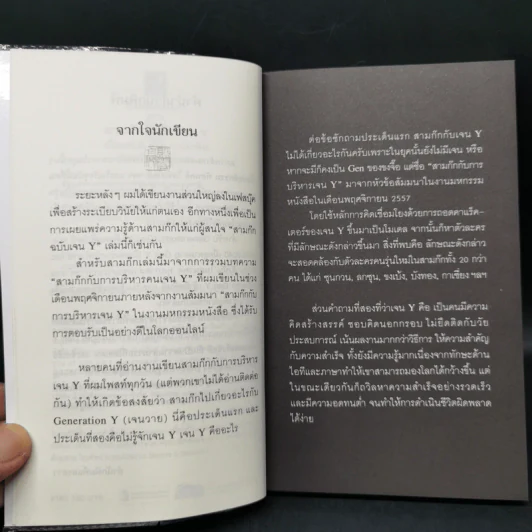 จากใจนักเขียน
ระยะหลังๆ ผมได้เขียนงานส่วนใหญ่ลงในเฟสบุ๊ค
เพื่อสร้างระเบียบวินัยให้แก่ตนเอง อีกทางหนึ่งเพื่อเป็น
การเผยแพร่ความรู้ด้านสามก๊กให้แก่ผู้สนใจ “สามก๊ก
ฉบับเจน Y” เล่มนี้ก็เช่นกัน
สำหรับสามก๊กเล่มนี้มาจากการรวมบทความ
“สามก๊กกับการบริหารคนเจน Y” ที่ผมเขียนในช่วง
เดือนพฤศจิกายนภายหลังจากงานสัมมนา “สามก๊กกับ
การบริหารเจน Y” ในงานมหกรรมหนังสือ ซึ่งได้รับ
การตอบรับเป็นอย่างดีในโลกออนไลน์
หลายคนที่อ่านงานเขียนสามก๊กกับการบริหาร
เจน Y ที่ผมโพสท์ทุกวัน (แต่พวกเขาไม่ได้อ่านติดต่อ
กัน) ทำให้เกิดข้อสงสัยว่า สามก๊กไปเกี่ยวอะไรกับ
Generation Y (เจนวาย) นี่คือประเด็นแรก และ
ประเด็นที่สองคือไม่รู้จักเจน Y เจน Y คืออะไร
ต่อข้อซักถามประเด็นแรก สามก๊กกับเจน Y
ไม่ได้เกี่ยวอะไรกันครับเพราะในยุคนั้นยังไม่มีเจน หรือ
หากจะมีก็คงเป็น Gen ของขงจื้อ แต่ชื่อ “สามก๊กกับการ
บริหารเจน Y” มาจากหัวข้อสัมมนาในงานมหกรรม
หนังสือในเดือนพฤศจิกายน 2557
โดยใช้หลักการคิดเชื่อมโยงด้วยการถอดคาแร็ค-
เตอร์ของเจน Y ขึ้นมาเป็นโมเดล จากนั้นก็หาตัวละคร
ที่มีลักษณะดังกล่าวขึ้นมา สิ่งที่พบคือ ลักษณะดังกล่าว
จะสอดคล้องกับตัวละครคนรุ่นใหม่ในสามก๊กทั้ง 20 กว่า
คน ได้แก่ ซุนกวน, ลกซุน, ขงเบ้ง, บังทอง, กาเซี่ยง ฯลฯ
ส่วนคำถามที่สองที่ว่าเจน Y คือ เป็นคนมีความ
คิดสร้างสรรค์ ชอบคิดนอกกรอบ ไม่ยึดติดกับวัย
ประสบการณ์ เน้นผลงานมากกว่าวิธีการ ให้ความสำคัญ
กับความสำเร็จ ทั้งยังมีความรู้มากเนื่องจากทักษะด้าน
ไอทีและภาษาทำให้เขาสามารถมองโลกได้กว้างขึ้น แต่
ในขณะเดียวกันก็ถวิลหาความสำเร็จอย่างรวดเร็ว
และมีความอดทนต่ำ จนทำให้การดำเนินชีวิตผิดพลาด
ได้ง่าย